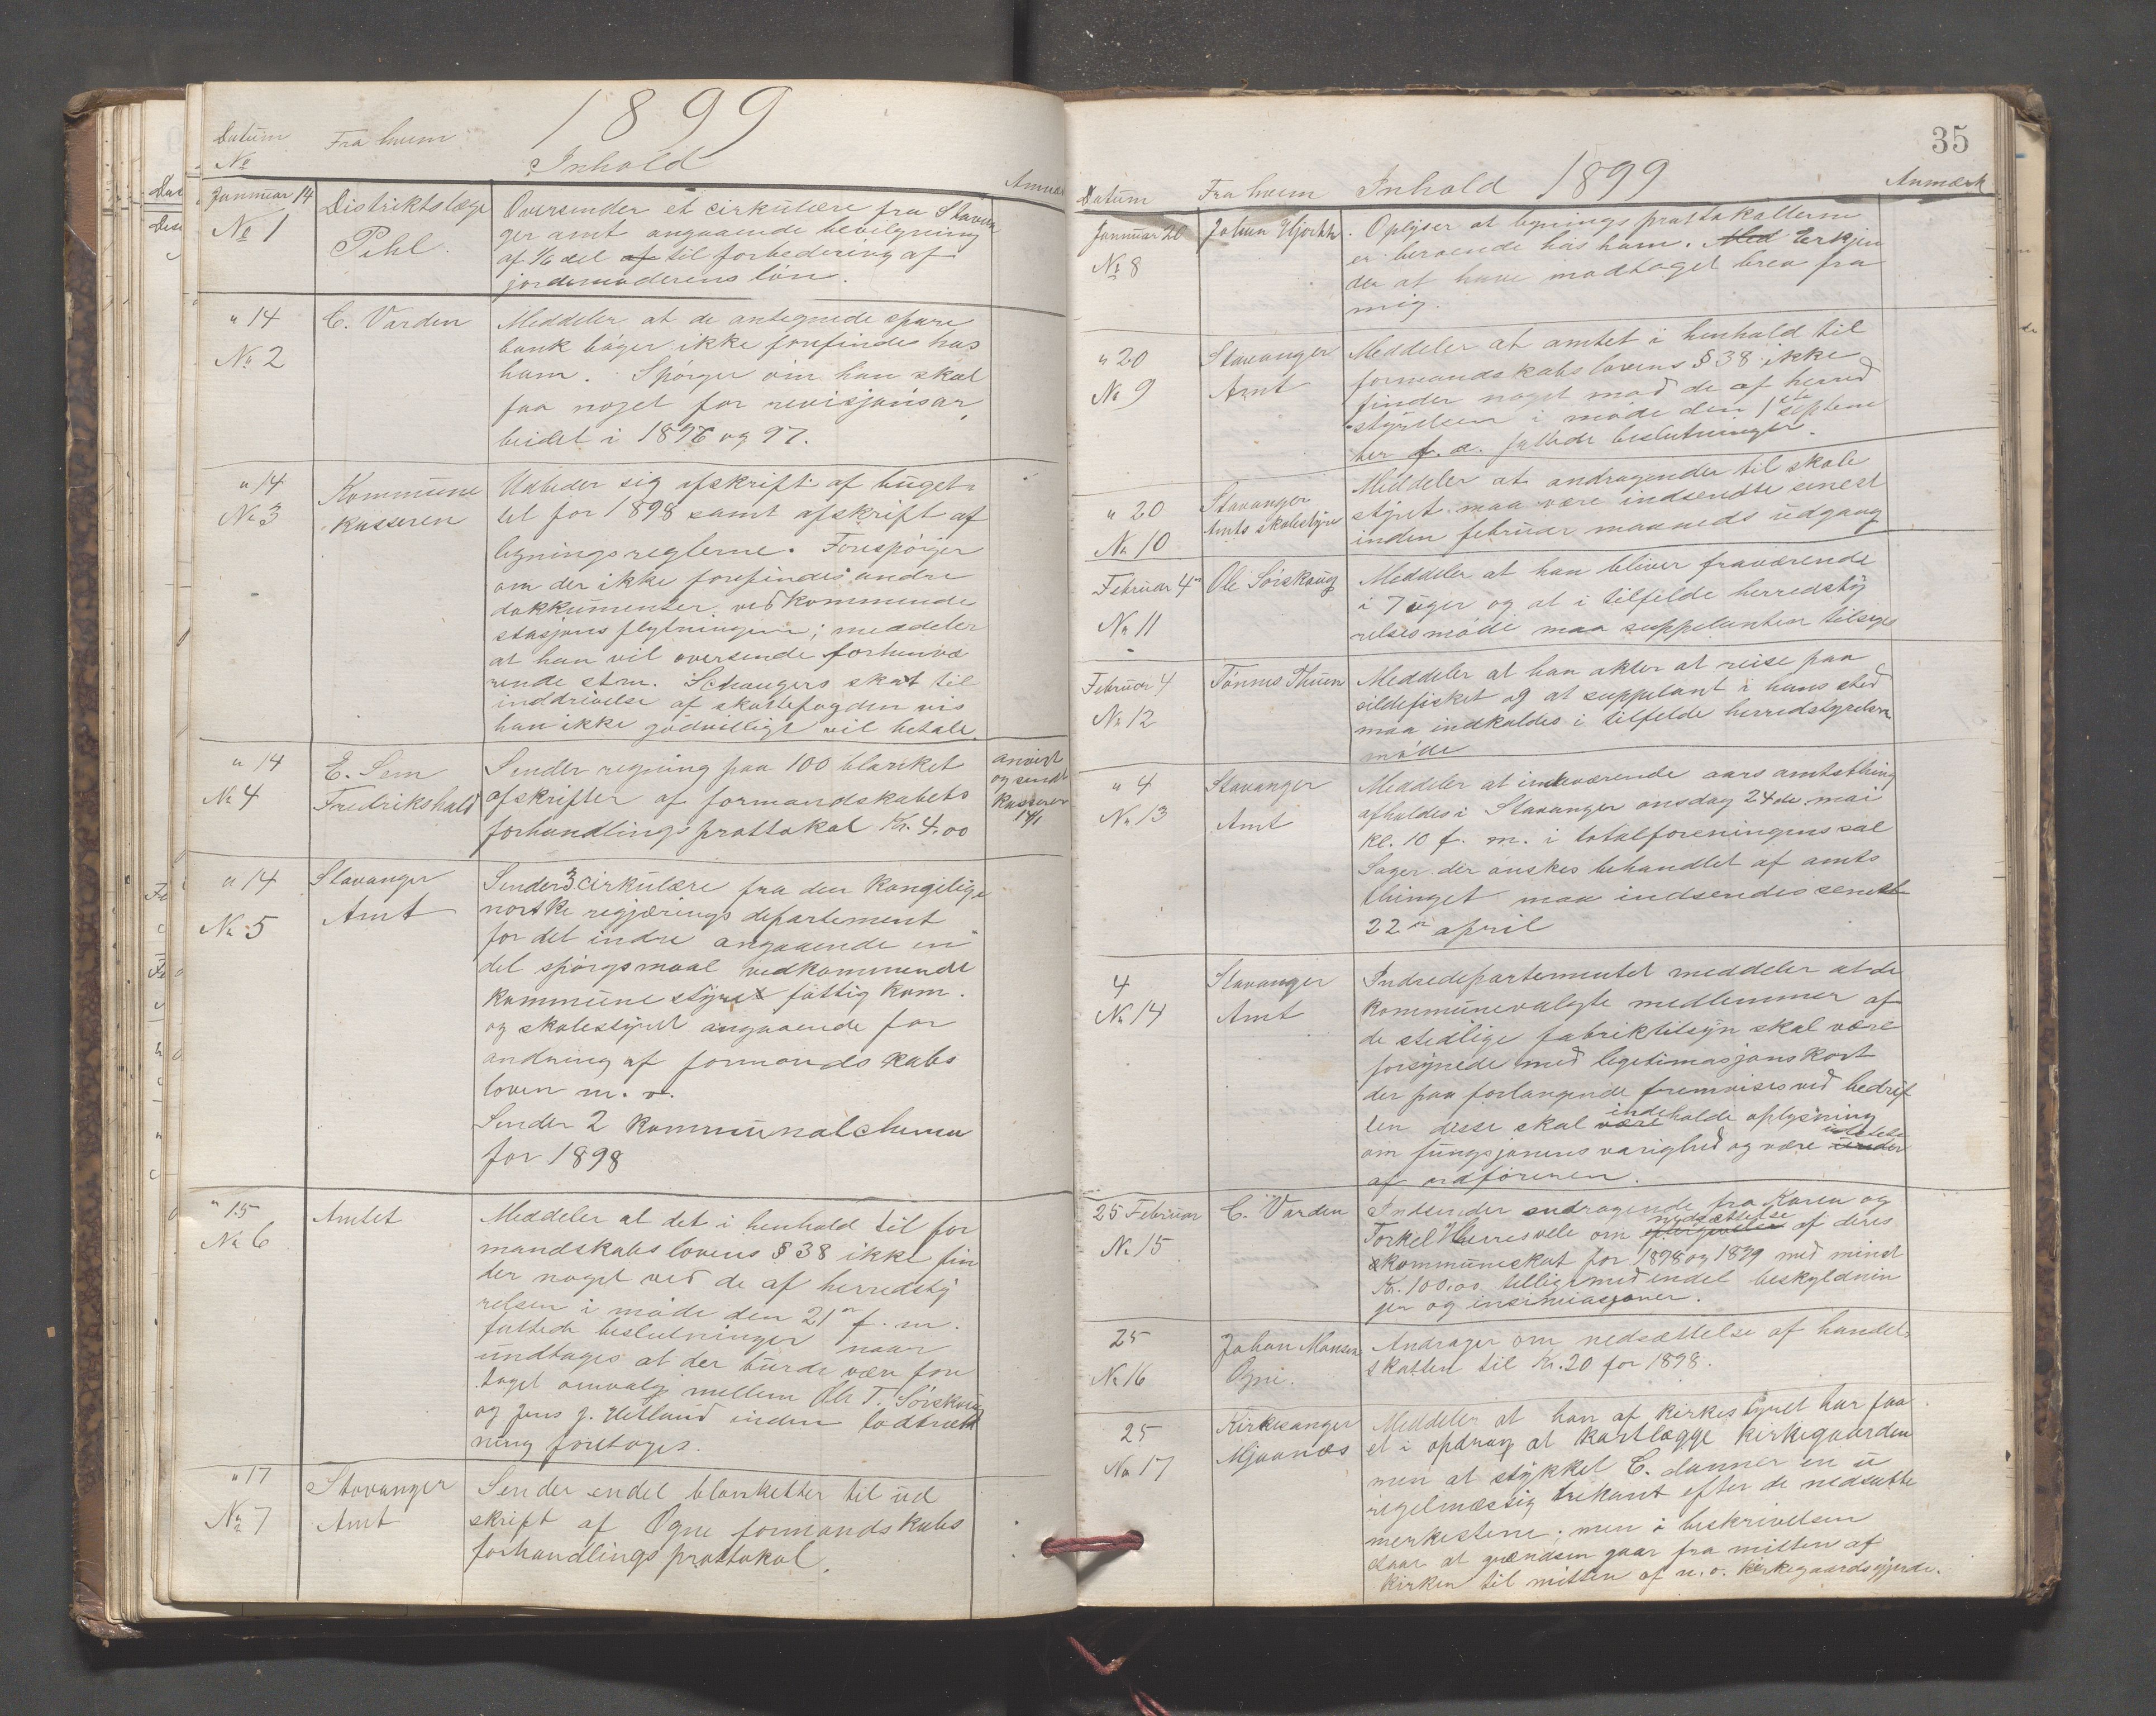 1899
Datum Fra hvem Inhold Anmær
No
Januar 14 Distriktslæge Oversender et cirkulære fra Stavan
No 1 Pihl. ger amt angaaende bevilgning
af 1/6 del af til forbedering af
jordemoderens løn.
" 14 C. Varden Meddeler at de antegnede spare
No 2 bank bøger ikke forefindes hos
ham. Spørger om han skal
faa noget for revisjonsar
beidet i 1896 og 97.
" 14 Kommune Udbeder sig afskrift af buget
No 3 kasseren tet for 1898 samt afskrift af
ligningsreglerne. Forespørger
om der ikke forefindes andre
dokkumenter vedkommende
stasjons flytningen; meddeler
at han vil oversende forhenvæ
rende stm. Schaugers skat til
inddrivelse af skattefogden vis
han ikke godvilligt vil betale.
" 14 E. Sem Sender regning paa 100 blanket anvist
No 4 Fredrikshald afskrifter af formandskabets og sendt
forhandlingsprottokol Kr. 4.00 Kasseren
14/1
" 14 Stavanger Sender 3 cirkulære fra den Kongelige
No 5 Amt norske regjærings departement
for det indre angaaende en
del spørgsmaal vedkommende
kommunestyret fattig kom.
og skolestyret angaaende for
andring af formandskabs
loven m. v.
Sender 2 Kommunalchema
for 1898
" 15 Amtet Meddeler at det i henhold til for
No 6 mandskabslovens § 38 ikke fin
der noget ved de af herredsty
relsen i møde den 21de f. m.
fattede beslutninger naar
undtages at der burde være fore
taget omvalg mellem Ole T. Sørskoug
og Jens J. Hetland inden lodtræk
ning foretoges.
" 17 Stavanger Sender endel blanketter til ud
No 7 Amt skrift af Ogne formandskabs
forhandlingsprottokol.
35
Datum Fra hvem Inhold 1899 Anmærk
Januar 20 Johan Hjorth. Oplyser at ligningsprottokollerne
No 8 er beroende hos ham. Med Erkjen
der at have modtaget brev fra
mig.
" 20 Stavanger Meddeler at amtet i henhold til
No 9 Amt formandskabslovens § 38 ikke
finder noget mod de af herred
styrelsen i møde den 1ste septem
ber f. a. fattede beslutninger.
" 20 Stavanger Meddeler at andragender til skole
No 10 Amts skolestyre styret maa være indsendte senest
inden februar maaneds udgang
Februar 4de Ole Sørskoug Meddeler at han bliver fraværende
No 11 i 7 uger og at i tilfelde herredsty
relsesmøde maa suppelanten tilsiges
Februar 4 Tønnes Thuen Meddeler at han akter at reise paa
No 12 sildefisket og at suppelant i hans sted
maa indkaldes i tilfelde herredstyrelses
møde
" 4 Stavanger Meddeler at indeværende aars amtsthing
No 13 Amt afholdes i Stavanger onsdag 24de mai
kl. 10 f. m. i totalforeningens sal
Sager der ønskes behandlet af amts
thinget maa indsendes senest
22de april
4 Stavanger Indredepartementet meddeler at de
No 14 Amt kommunevalgte medlemmer af
de stedlige fabriktilsyn skal være
forsynede med legetimasjonskort
der paa forlangende fremvises ved bedrif
ten disse skal være indeholde oplysning
om fungsjonens varighed og være under
af ordføreren.
25 Februar C. Varden Indsender andragende fra Karen og
No 15 Torkel Herresvele om eftergivelse nedsættelse af deres
kommuneskat for 1898 og 1899 med mindst
Kr. 100.00 tilligemed endel beskyldnin
ger og insinuasjoner.
25 Johan Monsen Andrager om nedsættelse af handel
No 16 Ogne. skatten til Kr. 20 for 1898.
25 Kirkesanger Meddeler at han af kirkestyret har faa
No 17 Mjaanæs et i opdrag at kartlægge kirkegaarden
men at stykket C. danner en u
regelmæssig trekant efter de nedsatte
merkestene; men i beskrivelsen
staar at grændsen gaar fra mitten af
kirken til mitten af n. o. kirkegaardsgjerde.